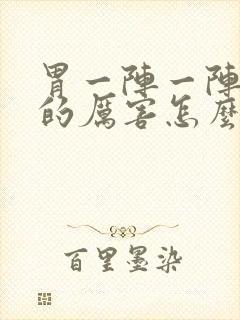 胃一陣一陣
的厲害怎麼
百里墨染